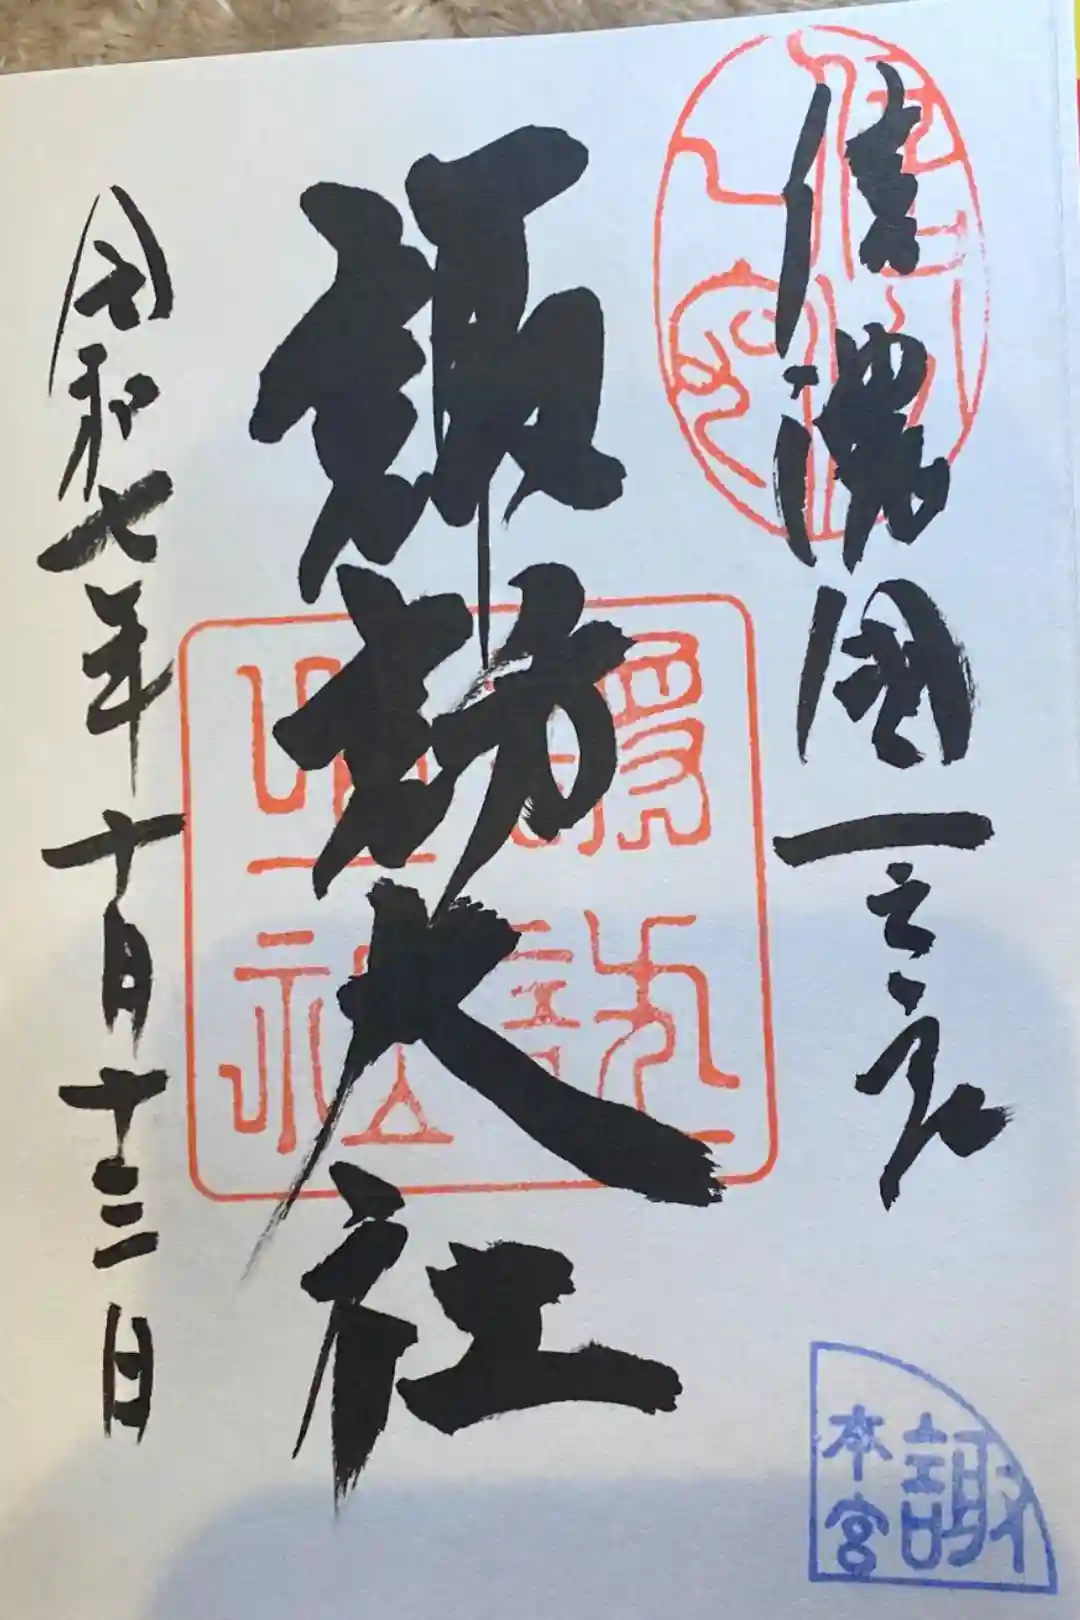 信濃國一之宮
諏訪大社
令和七年十月十三日
諏
本宮